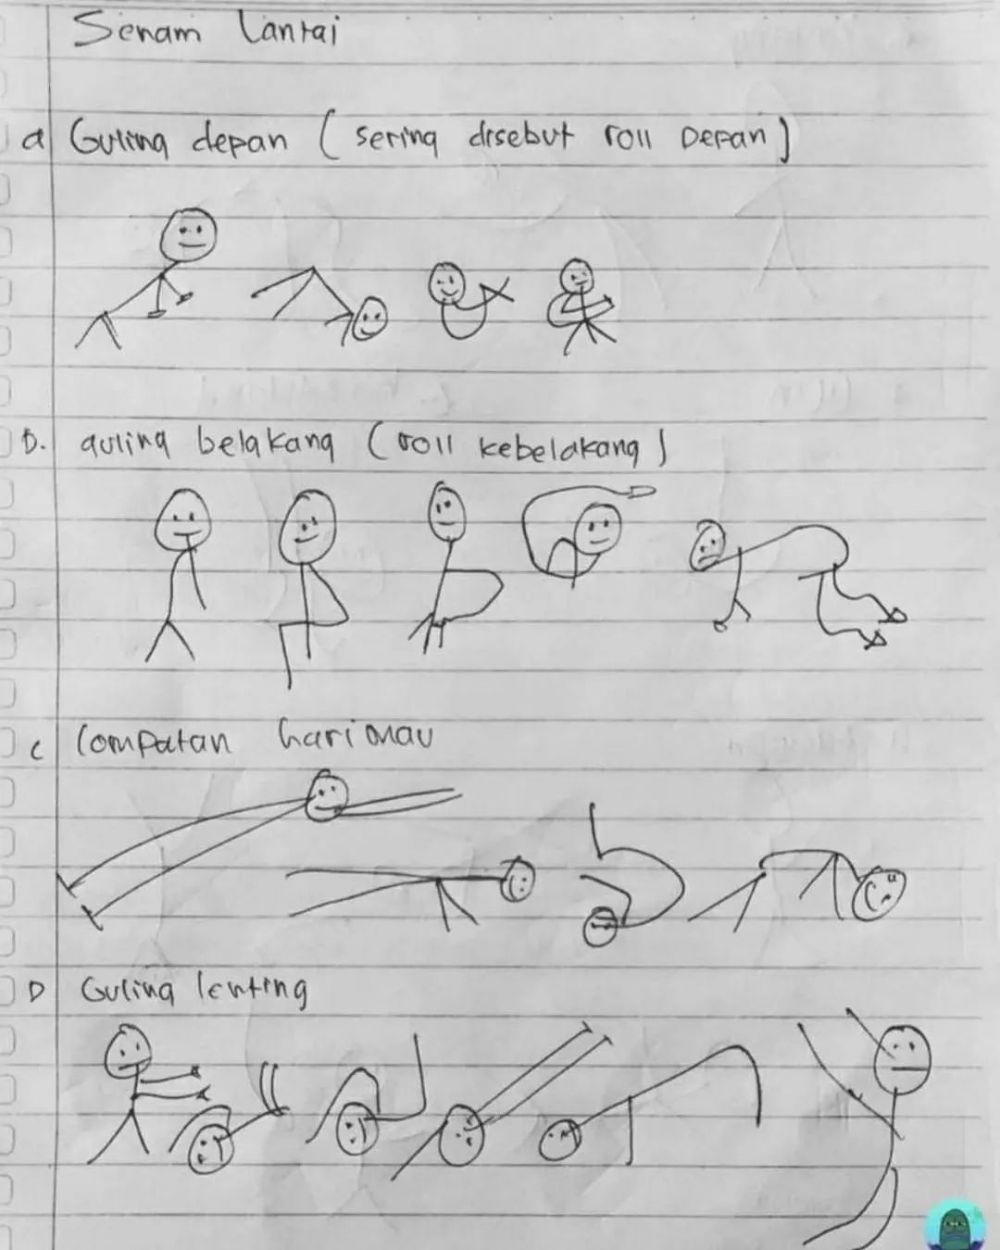 Senam lantai
a Guling depan ( sering disebut roll Depan )
B. guling belakang ( roll kebelakang )
c lompatan harimau
D Guling lenting